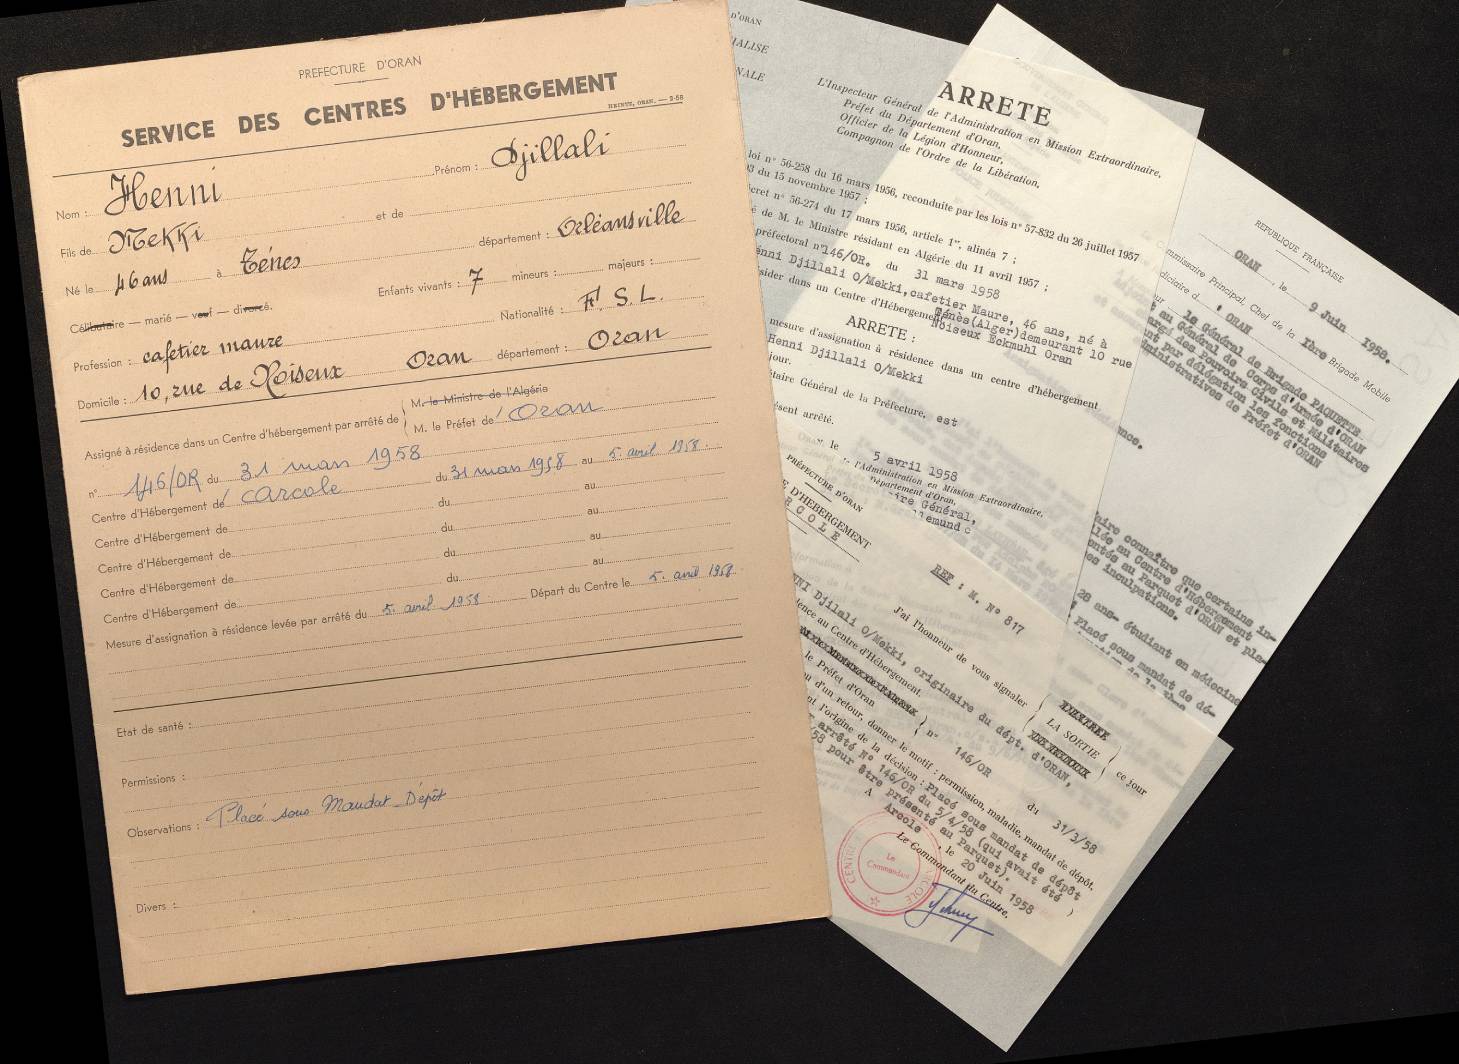 PREFECTURE D'ORAN
SERVICE DES CENTRES D'HÉBERGEMENT
HEINTZ, ORAN. — 2-58
Nom : Henni Prénom : Djillali
Fils de Mekki et de
Né le 46 ans à Ténes département : Orléansville
Célibataire — marié — veuf — divorcé. Enfants vivants : 7 mineurs : majeurs :
Profession : cafetier maure Nationalité : F. S. L.
Domicile : 10, rue de Noiseux Oran département : Oran
Assigné à résidence dans un Centre d'hébergement par arrêté de
M. le Ministre de l'Algérie
M. le Préfet de Oran
n° 146/OR du 31 mars 1958
Centre d'Hébergement de Arcole du 31 mars 1958 au 5 avril 1958
Centre d'Hébergement de du au
Centre d'Hébergement de du au
Centre d'Hébergement de du au
Centre d'Hébergement de du au
Mesure d'assignation à résidence levée par arrêté du 5. avril 1958 Départ du Centre le 5. avril 1958
Etat de santé :
Permissions :
Observations : Placé sous Mandat-Dépôt
Divers :
D'ORAN
IALISE
NALE
ARRETE
L'Inspecteur Général de l'Administration en Mission Extraordinaire,
Préfet du Département d'Oran,
Officier de la Légion d'Honneur,
Compagnon de l'Ordre de la Libération,
loi n° 56-258 du 16 mars 1956, reconduite par les lois n° 57-832 du 26 juillet 1957
du 15 novembre 1957 ;
cret n° 56-274 du 17 mars 1956, article 1er, alinéa 7 ;
é de M. le Ministre résidant en Algérie du 11 avril 1957 ;
préfectoral n° 146/OR. du 31 mars 1958
enni Djillali O/Mekki, cafetier Maure, 46 ans, né à
sider dans un Centre d'Hébergement Ténès (Alger) demeurant 10 rue
Noiseux Eckmuhl Oran
ARRETE :
mesure d'assignation à résidence dans un centre d'hébergement
Henni Djillali O/Mekki
jour.
étaire Général de la Préfecture, est
ésent arrêté.
ORAN, le 5 avril 1958
l'Administration en Mission Extraordinaire,
Département d'Oran,
ire Général,
PRÉFECTURE D'ORAN
E D'HÉBERGEMENT
RCOLE
REF : M. N° 817
J'ai l'honneur de vous signaler
LA SORTIE
ce jour
NI Djillali O/Mekki, originaire du dépt. d'ORAN,
dence au Centre d'Hébergement.
le Préfet d'Oran n° 146/OR du 31/3/58
d'un retour, donner le motif : permission, maladie, mandat de dépôt,
nt l'origine de la décision : Placé sous mandat de dépôt
arrêté N° 146/OR du 5/4/58 (qui avait été
58 pour être présenté au Parquet). )
A Arcole, le 20 Juin 1958
Le Commandant du Centre,
CENTRE ARCOLE
Le Commandant
REPUBLIQUE FRANÇAISE
ORAN, le 9 Juin 1958.
mmissaire Principal, Chef de la 1ère Brigade Mobile
diciaire d' ORAN
le Général de Brigade PAQUETTE
t au Général de Corps d'Armée d'ORAN
argé des Pouvoirs Civils et Militaires
ant par délégation les fonctions
ministratives de Préfet d'ORAN
nce.
aire connaître que certains in-
llés au Centre d'Hébergement
ntés au Parquet d'ORAN et pla-
es inculpations.
28 ans- étudiant en médecine
Placé sous mandat de dé-